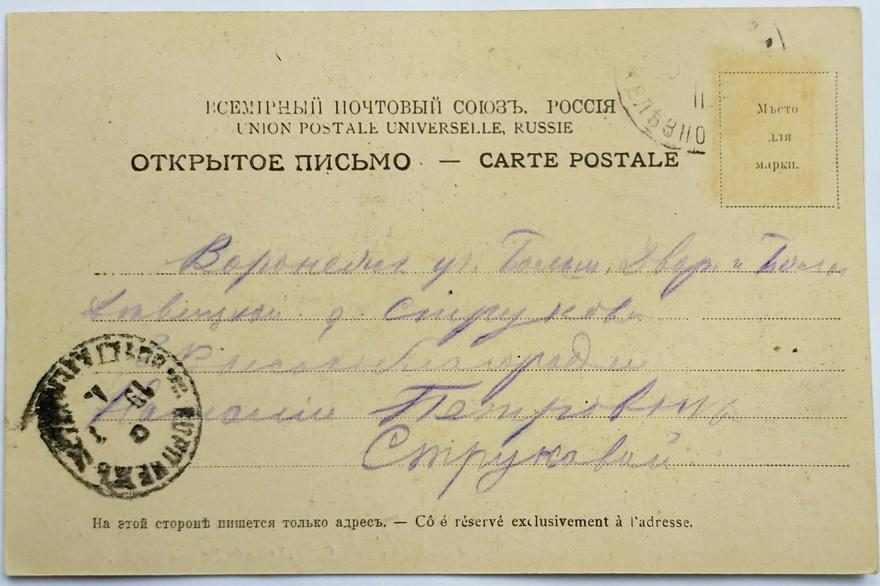 ВСЕМІРНЫЙ ПОЧТОВЫЙ СОЮЗЪ. РОССІЯ
UNION POSTALE UNIVERSELLE, RUSSIE
ОТКРЫТОЕ ПИСЬМО — CARTE POSTALE
Мѣсто
для
марки.
Воронежъ уг. Больш. Двор. и
д. Струкова
Наталіи Петровнѣ
Струковой
ВОРОНЕЖЪ
На этой сторонѣ пишется только адресъ. — Cô é réservé exclusivement à l'adresse.